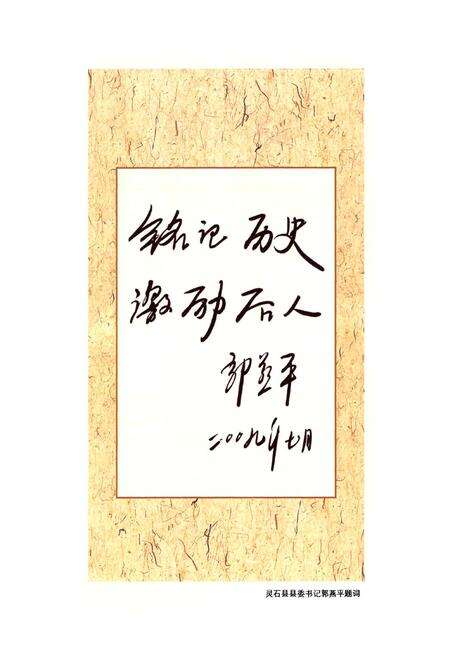 铭记历史
激励后人
郭燕平
二〇〇九年七月
灵石县县委书记郭燕平题词